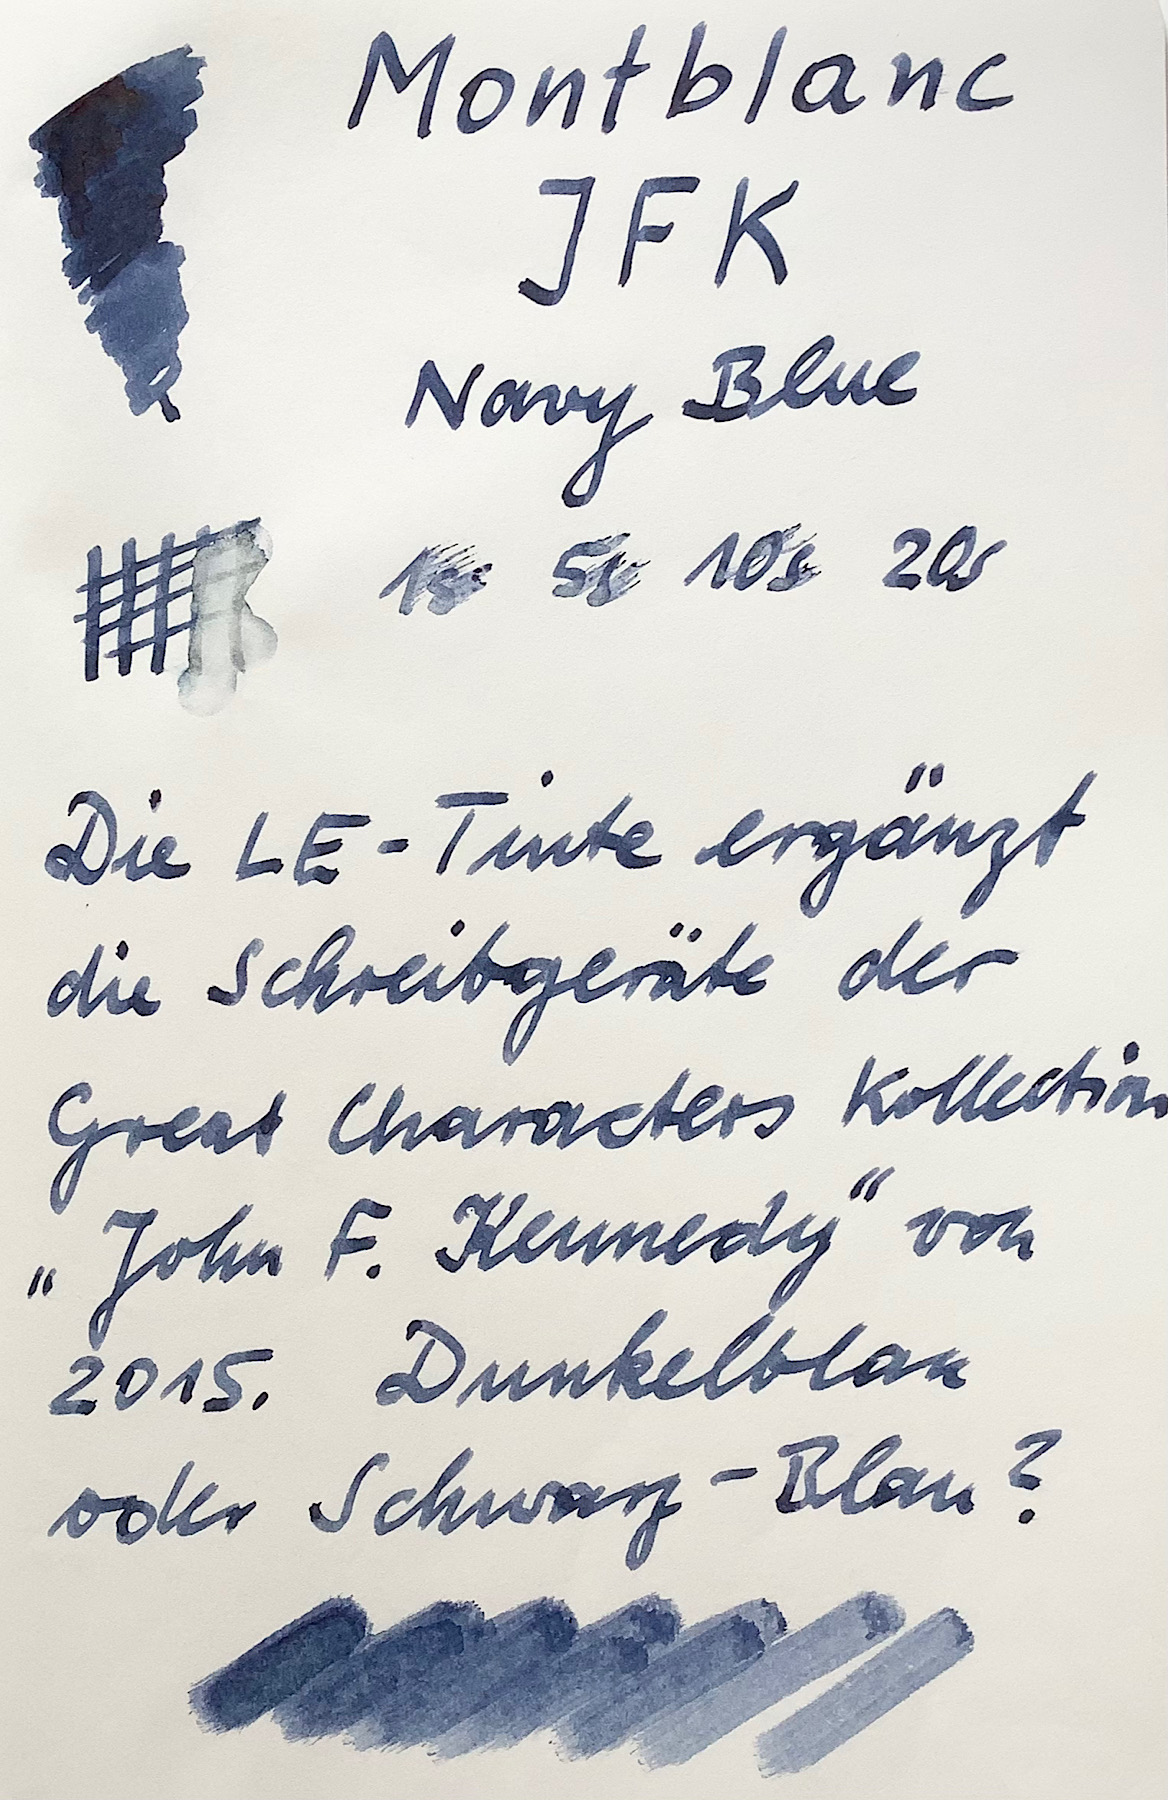 Montblanc
JFK
Navy Blue
1s 5s 10s 20s
Die LE-Tinte ergänzt
die Schreibgeräte der
Great Characters Kollection
„John F. Kennedy“ von
2015. Dunkelblau
oder Schwarz-Blau?